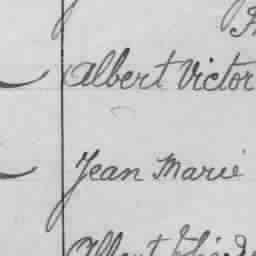 Albert Victor
Jean Marie
Albert